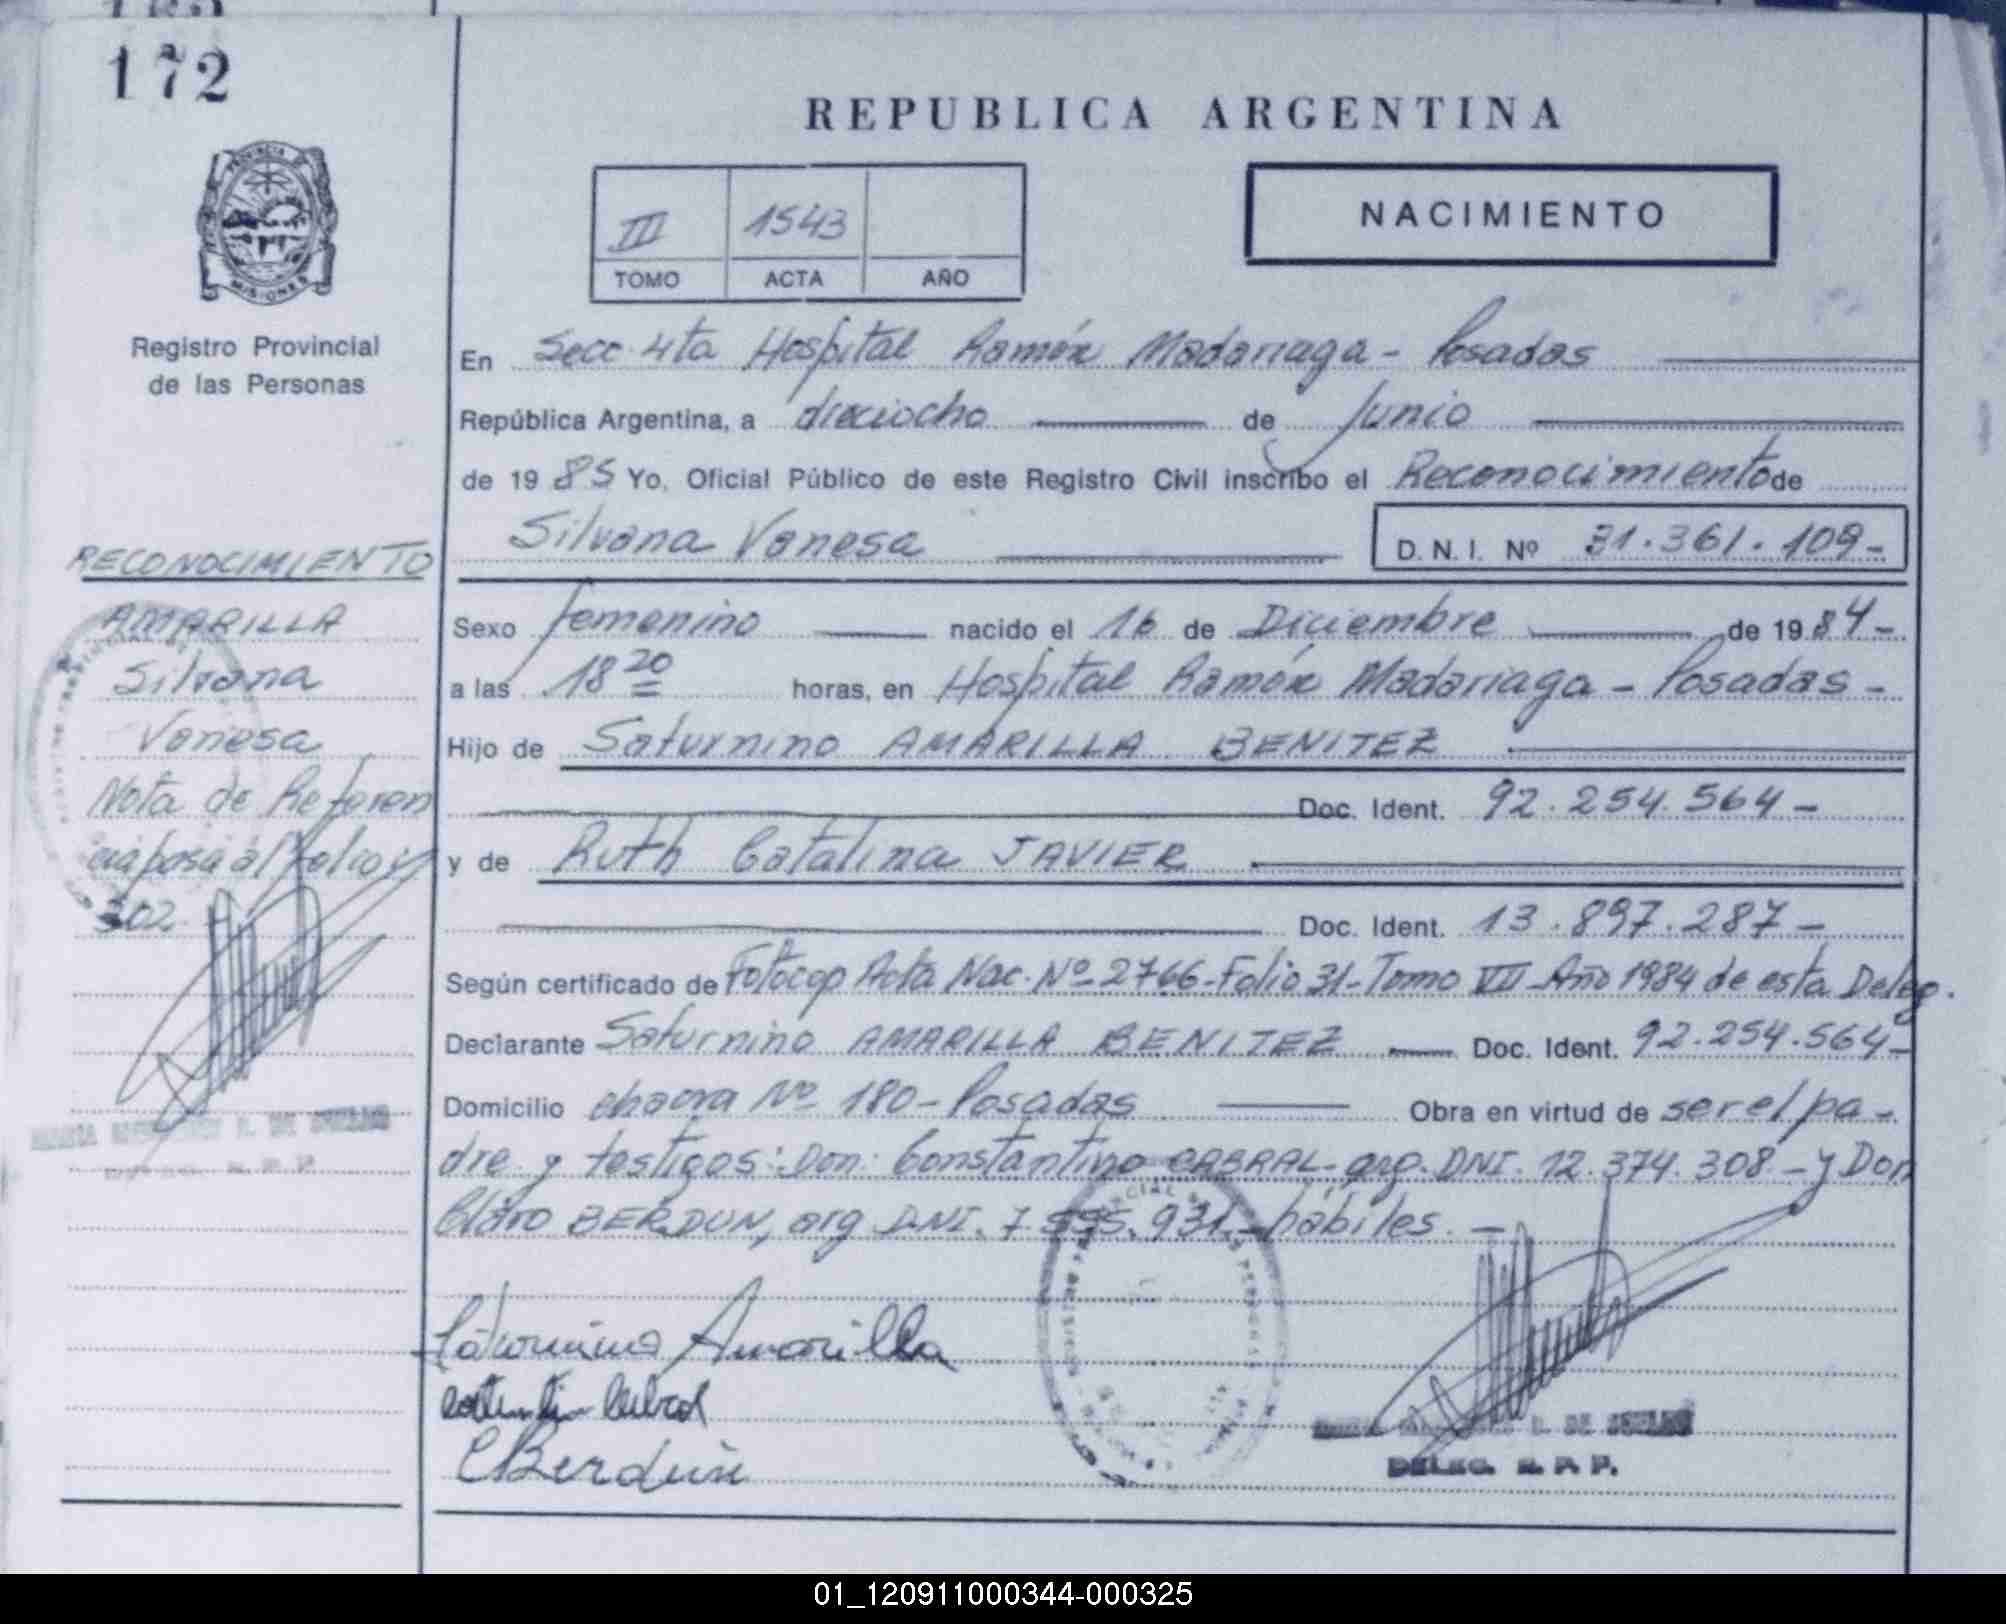 172
REPUBLICA ARGENTINA
PROVINCIA DE
MISIONES
III 1543
TOMO ACTA AÑO
NACIMIENTO
Registro Provincial
de las Personas
En Secc. 4ta Hospital Ramón Madariaga - Posadas
República Argentina, a dieciocho de Junio
de 1985 Yo, Oficial Público de este Registro Civil inscribo el Reconocimiento de
Silvana Vanesa D.N.I. Nº 31.361.109-
RECONOCIMIENTO
AMARILLA
Silvana
Vanesa
Nota de Referen
cia pasa al folio
302
Sexo femenino nacido el 16 de Diciembre de 1984-
a las 18 20 horas, en Hospital Ramón Madariaga - Posadas -
Hijo de Saturnino AMARILLA BENITEZ
Doc. Ident. 92.254.564-
y de Ruth Catalina JAVIER
Doc. Ident. 13.897.287-
Según certificado de Fotocop Acta Nac. Nº 2766-Folio 31-Tomo VII-Año 1984 de esta Deleg.
Declarante Saturnino AMARILLA BENITEZ Doc. Ident. 92.254.564-
Domicilio chacra Nº 180-Posadas Obra en virtud de ser el pa-
dre y testigos: Don: Constantino CABRAL-arg. DNI. 12.374.308-y Don
BERDUN, arg DNI. 7.595.931.-hábiles.-
Saturnino Amarilla
Cabral
CBerdún
DE
DELEG. R. P. P.
01_120911000344-000325